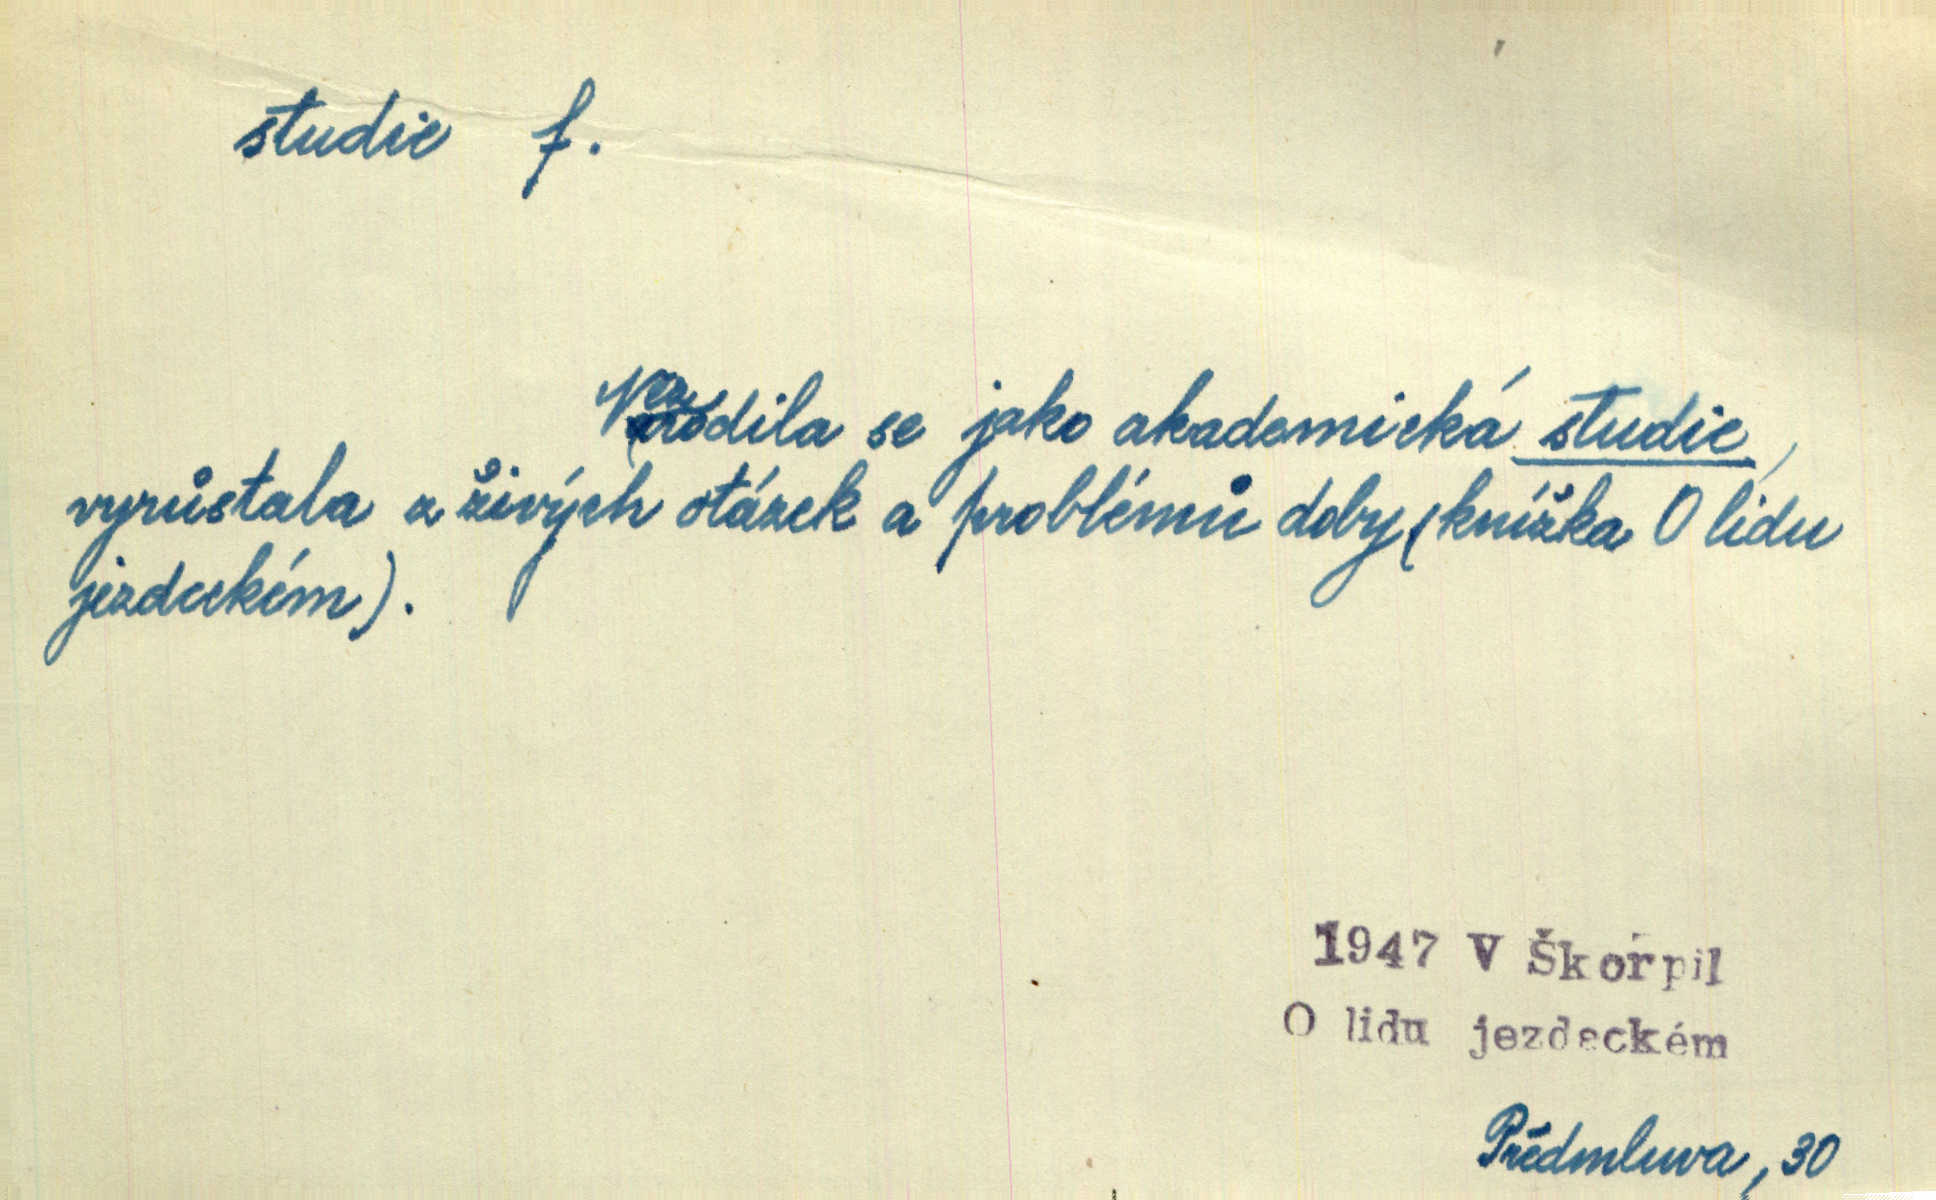 studie f.
Nezrodila se jako akademická studie,
vyrůstala z živých otázek a problémů doby (knížka O lidu
jezdeckém).
1947 V Škorpil
O lidu jezdeckém
Předmluva, 30